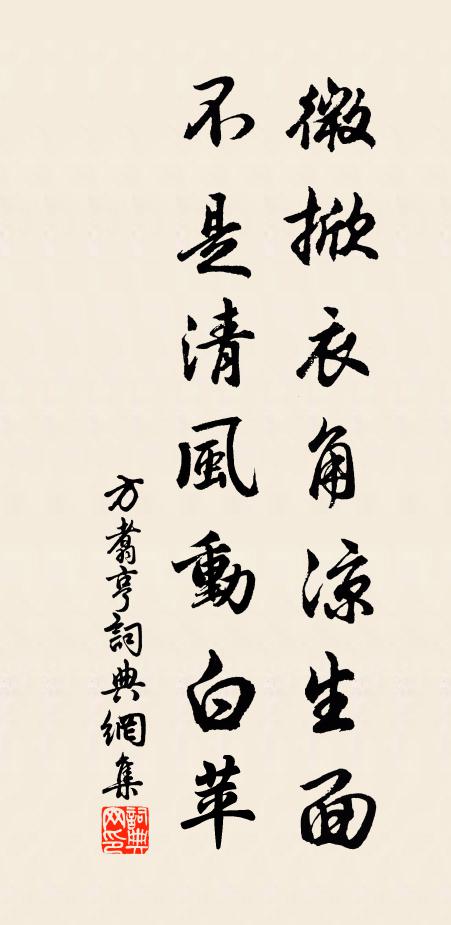 微掀衣角涼生面
不是清風動白苹
方翥亨詞典網集
詞典网印